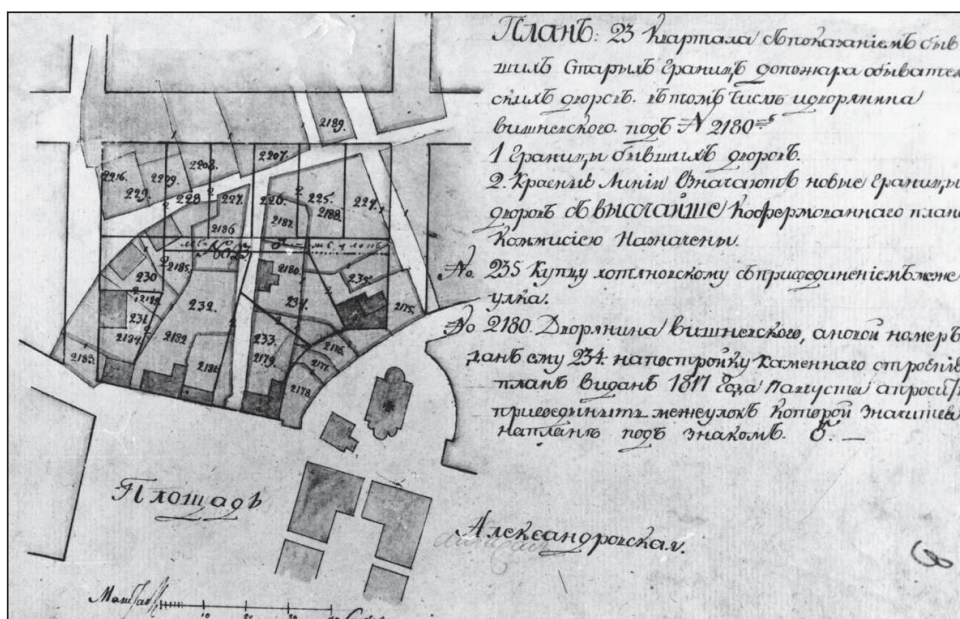 Планъ: 23 Квартала съ показанiемъ быв
шихъ Старыхъ Границъ до пожара обывател
скихъ дворовъ. въ томъ числе и дворянина
вишневского подъ № 2180
1 Границы бывшихъ дворовъ.
2. Красныи Линiи Означаютъ новые Границы
дворовъ съ высочайше Конфермованнаго плана
Коммисiею Назначены.
№ 235 Купцу хотяновскому съ присединенiемъ меже
улка.
№ 2180. Дворянина вишневского, а новой намеръ
данъ ему 234 на постройку каменнаго строенiя
планъ виданъ 1817 Года Августа а проситъ
присоединить межеулокъ Которой Значится
на планѣ подъ знакомъ. б. —
2189.
2216.
2209.
2208.
2207.
229.
228
227.
226.
225.
224.
2186
2187.
2188.
2185.
2180.
230
232.
234.
235.
2175.
231.
2184.
2183.
2182
2181.
233.
2179.
2176.
2177.
2178.
Площадь
Александровская.
Маштабъ
10
20
30
40